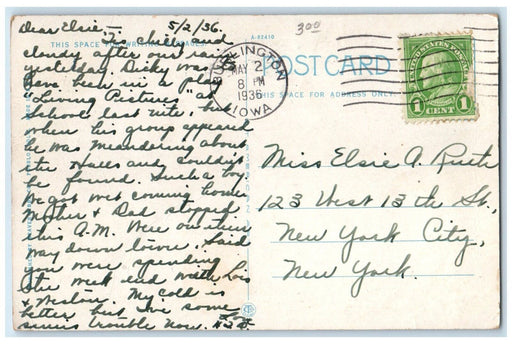 Dear Elsie— 5/2/36.
Is chilly and
cloudy after our rain
yesterday. Dicky was to
have been in a play
"Living Pictures" at
School last nite, but
when his group appeared
he was meandering about
the Halls and couldn't
be found. Such a boy
We got wet coming home
Mother & Dad stopped
this A.M. Were on their
way down town. Said
you were spending
the week end with Lois
& Weslow. My cold is
better but I've some
sinus trouble now.
THIS SPACE FOR WRITING MESSAGES
300
A-82410
BURLINGTON
MAY 2
8 PM
1936
IOWA
POST CARD
THIS SPACE FOR ADDRESS ONLY
UNITED STATES POSTAGE
1 CENT 1
Miss Elsie A. Ruth
123 West 13th St.,
New York City,
New York.